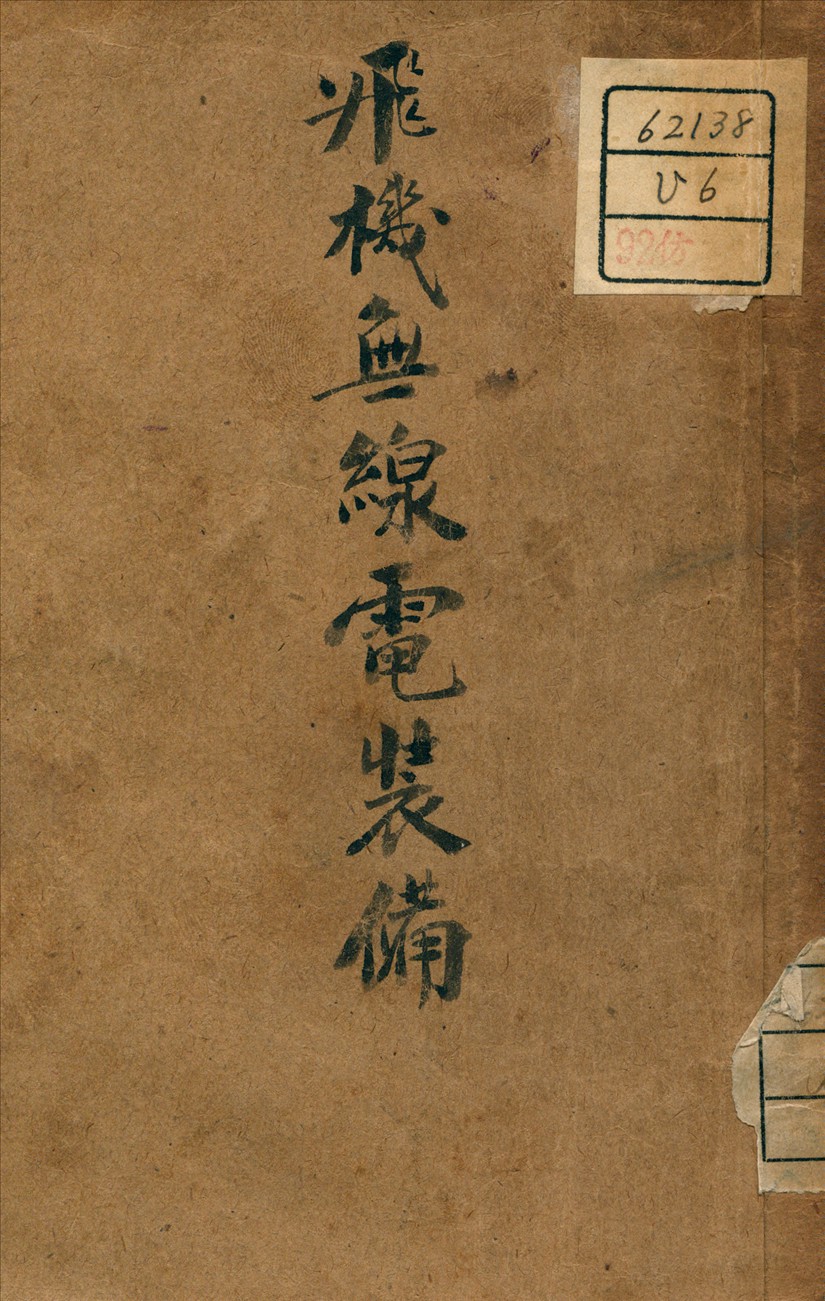 飛機無線電裝備
62138
V6